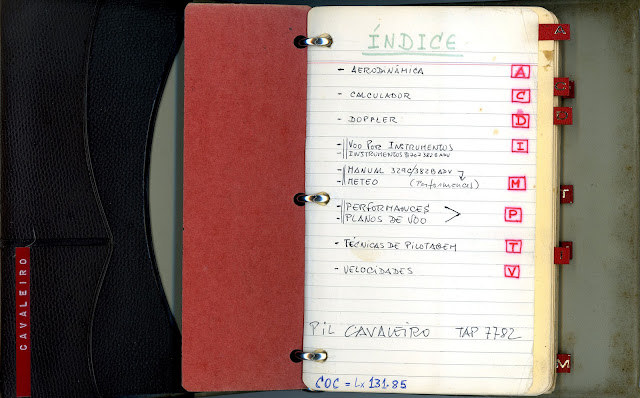 ÍNDICE
- AERODINÂMICA A
- CALCULADOR C
- DOPPLER D
- VOO POR INSTRUMENTOS I
- INSTRUMENTOS B707 382B ADV
- MANUAL 329C/382B ADV
- METEO (Performances) M
- PERFORMANCES P
- PLANOS DE VOO
- TÉCNICAS DE PILOTAGEM T
- VELOCIDADES V
PIL CAVALEIRO TAP 7782
COC = Lx 131.85
CAVALEIRO
A
T
I
M